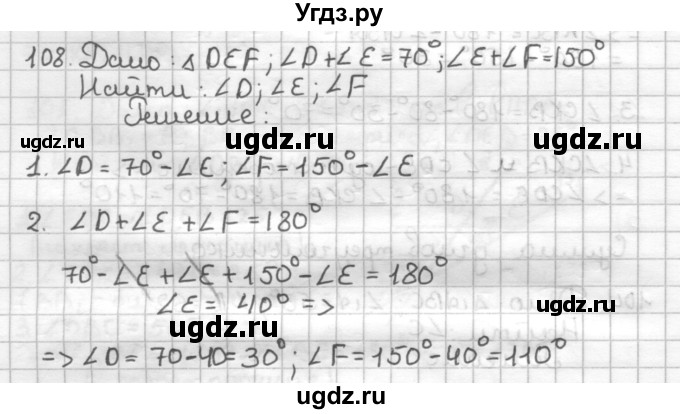 Угдз.ру
108. Дано: ▵ DEF; ∠D+∠E=70°; ∠E+∠F=150°
Найти: ∠D; ∠E; ∠F
Решение:
ugdz.ru ugdz.ru ugdz.ru
1. ∠D = 70°-∠E; ∠F=150°-∠E
2. ∠D+∠E+∠F=180°
ugdz.ru
70°-∠E+∠E+150°-∠E=180°
ugdz.ru ugdz.ru
∠E = 40° =>
=> ∠D = 70-40=30°; ∠F=150°-40°=110°
ugdz.ru